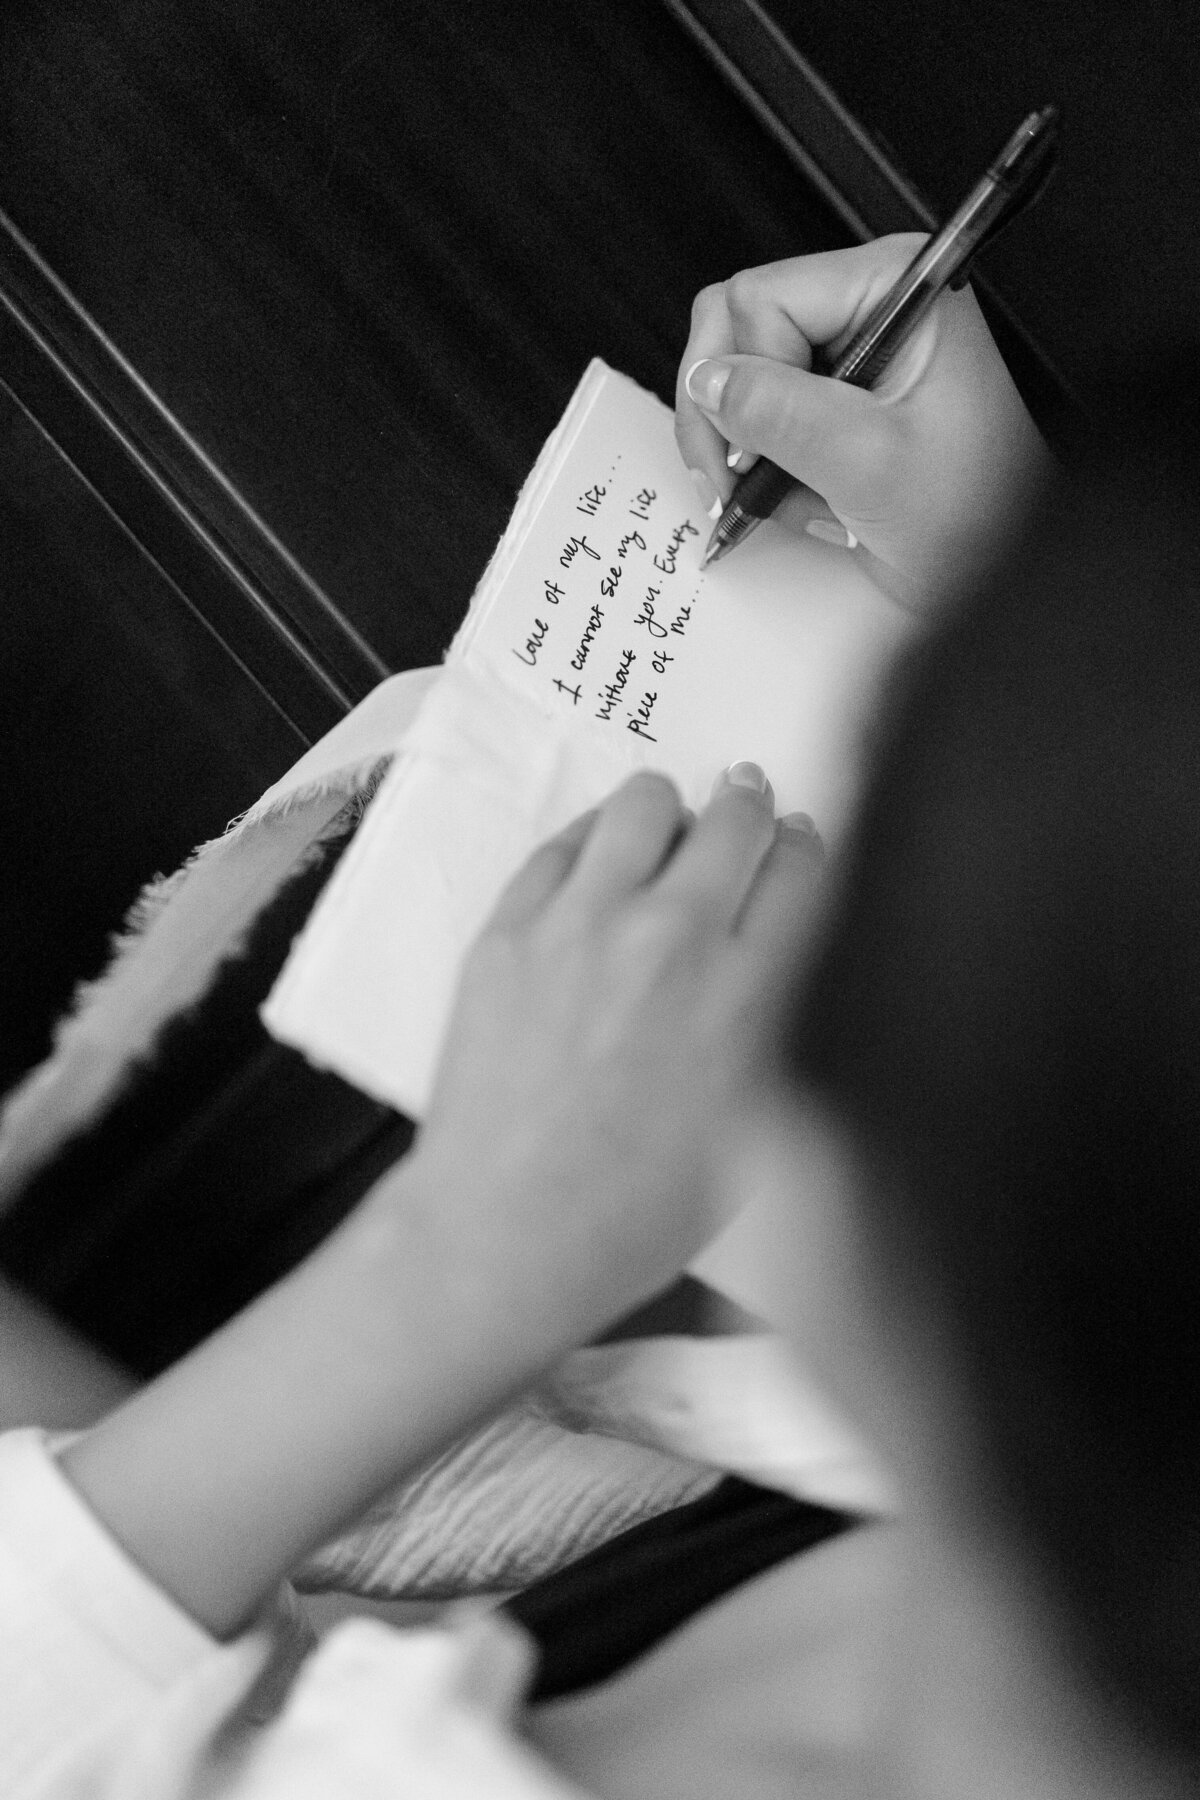 Love of my life...
I cannot see my life
without you. Every
piece of me...